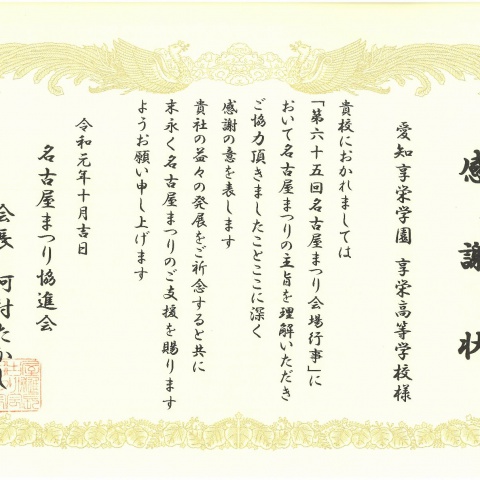 感謝状
愛知享栄学園 享栄高等学校様
貴校におかれましては
「第六十五回名古屋まつり会場行事」に
おいて名古屋まつりの主旨を理解いただき
ご協力頂きましたことここに深く
感謝の意を表します
貴社の益々の発展をご祈念すると共に
末永く名古屋まつりのご支援を賜ります
ようお願い申し上げます
令和元年十月吉日
名古屋まつり協進会
会長 河村たかし